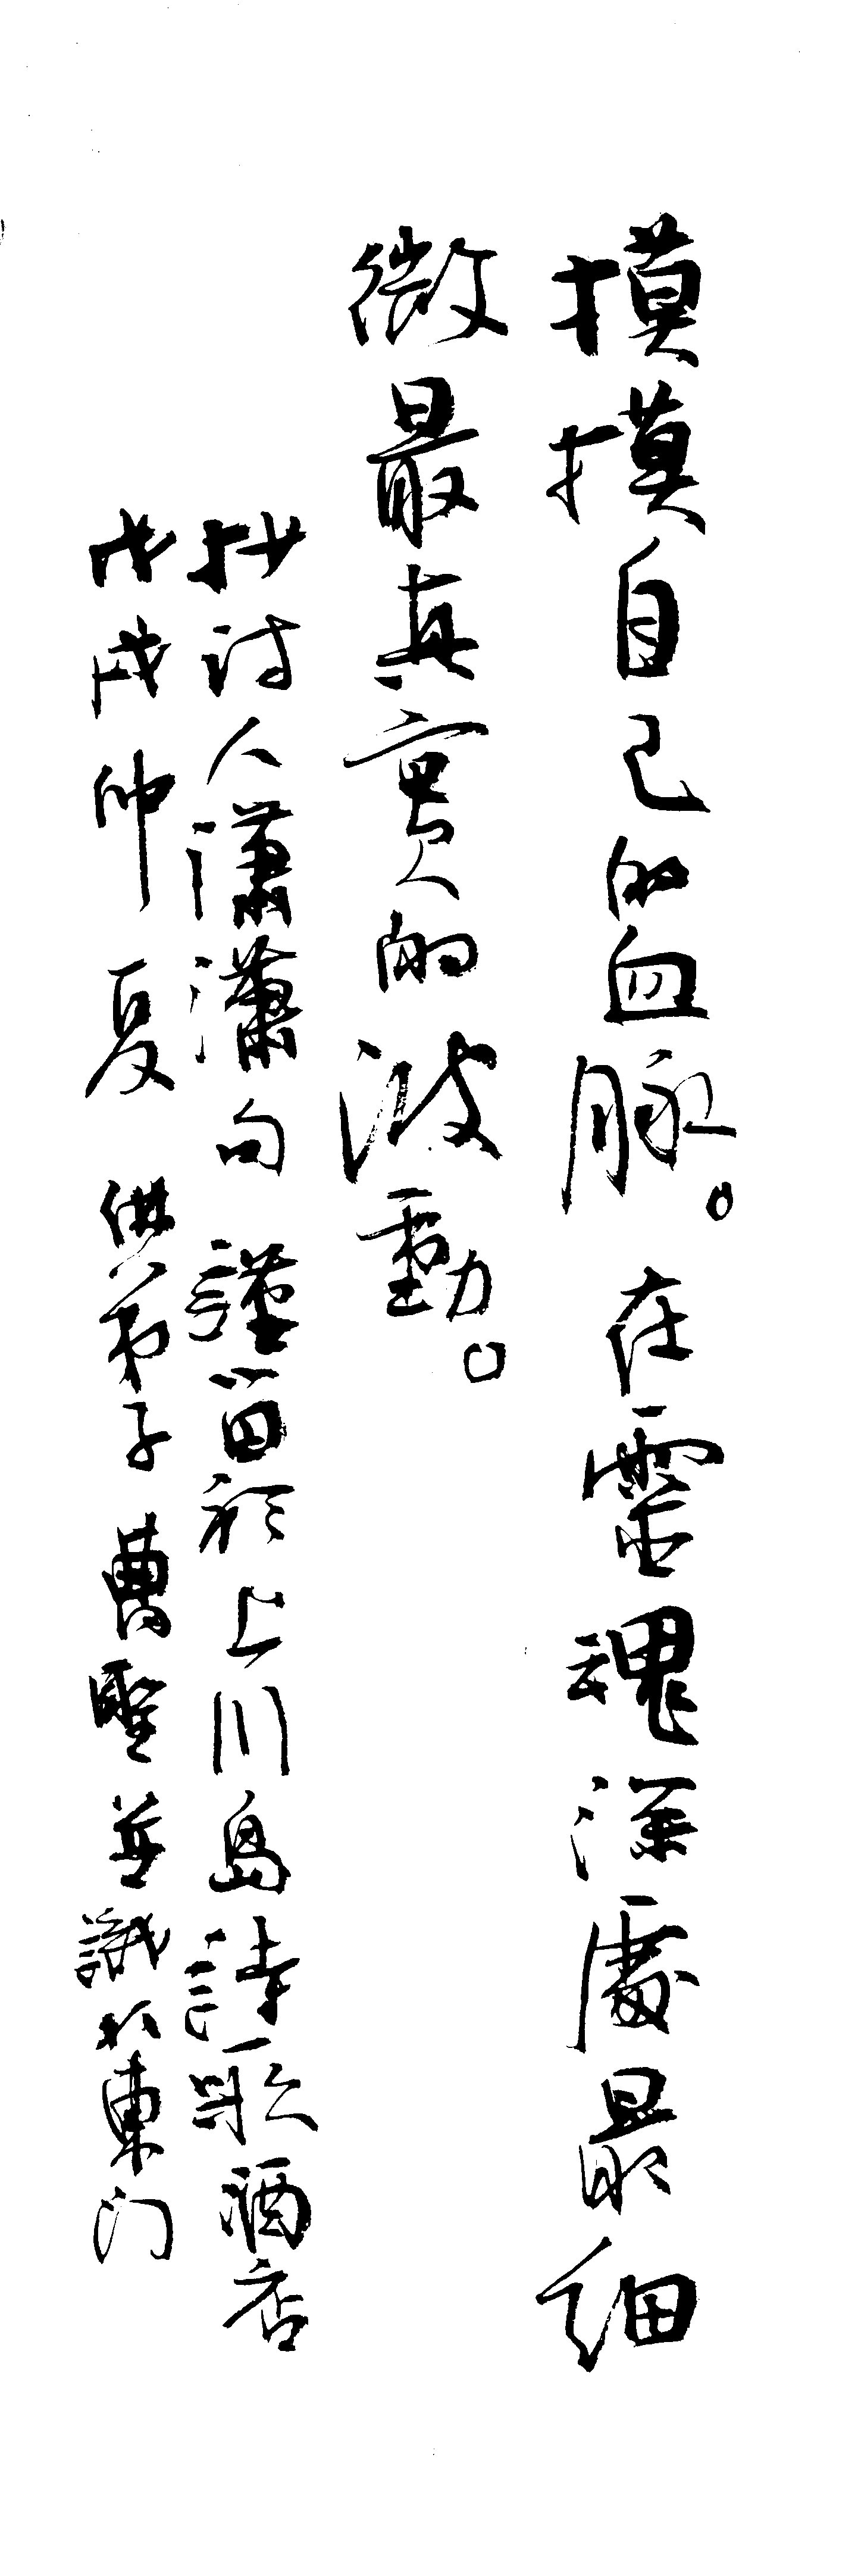 摸摸自己的血脉。在靈魂深處最細
微最真實的波動。
抄詩人瀟瀟句 謹留於上川島詩歌酒店
戊戌仲夏 佛弟子曹聖並識於東门